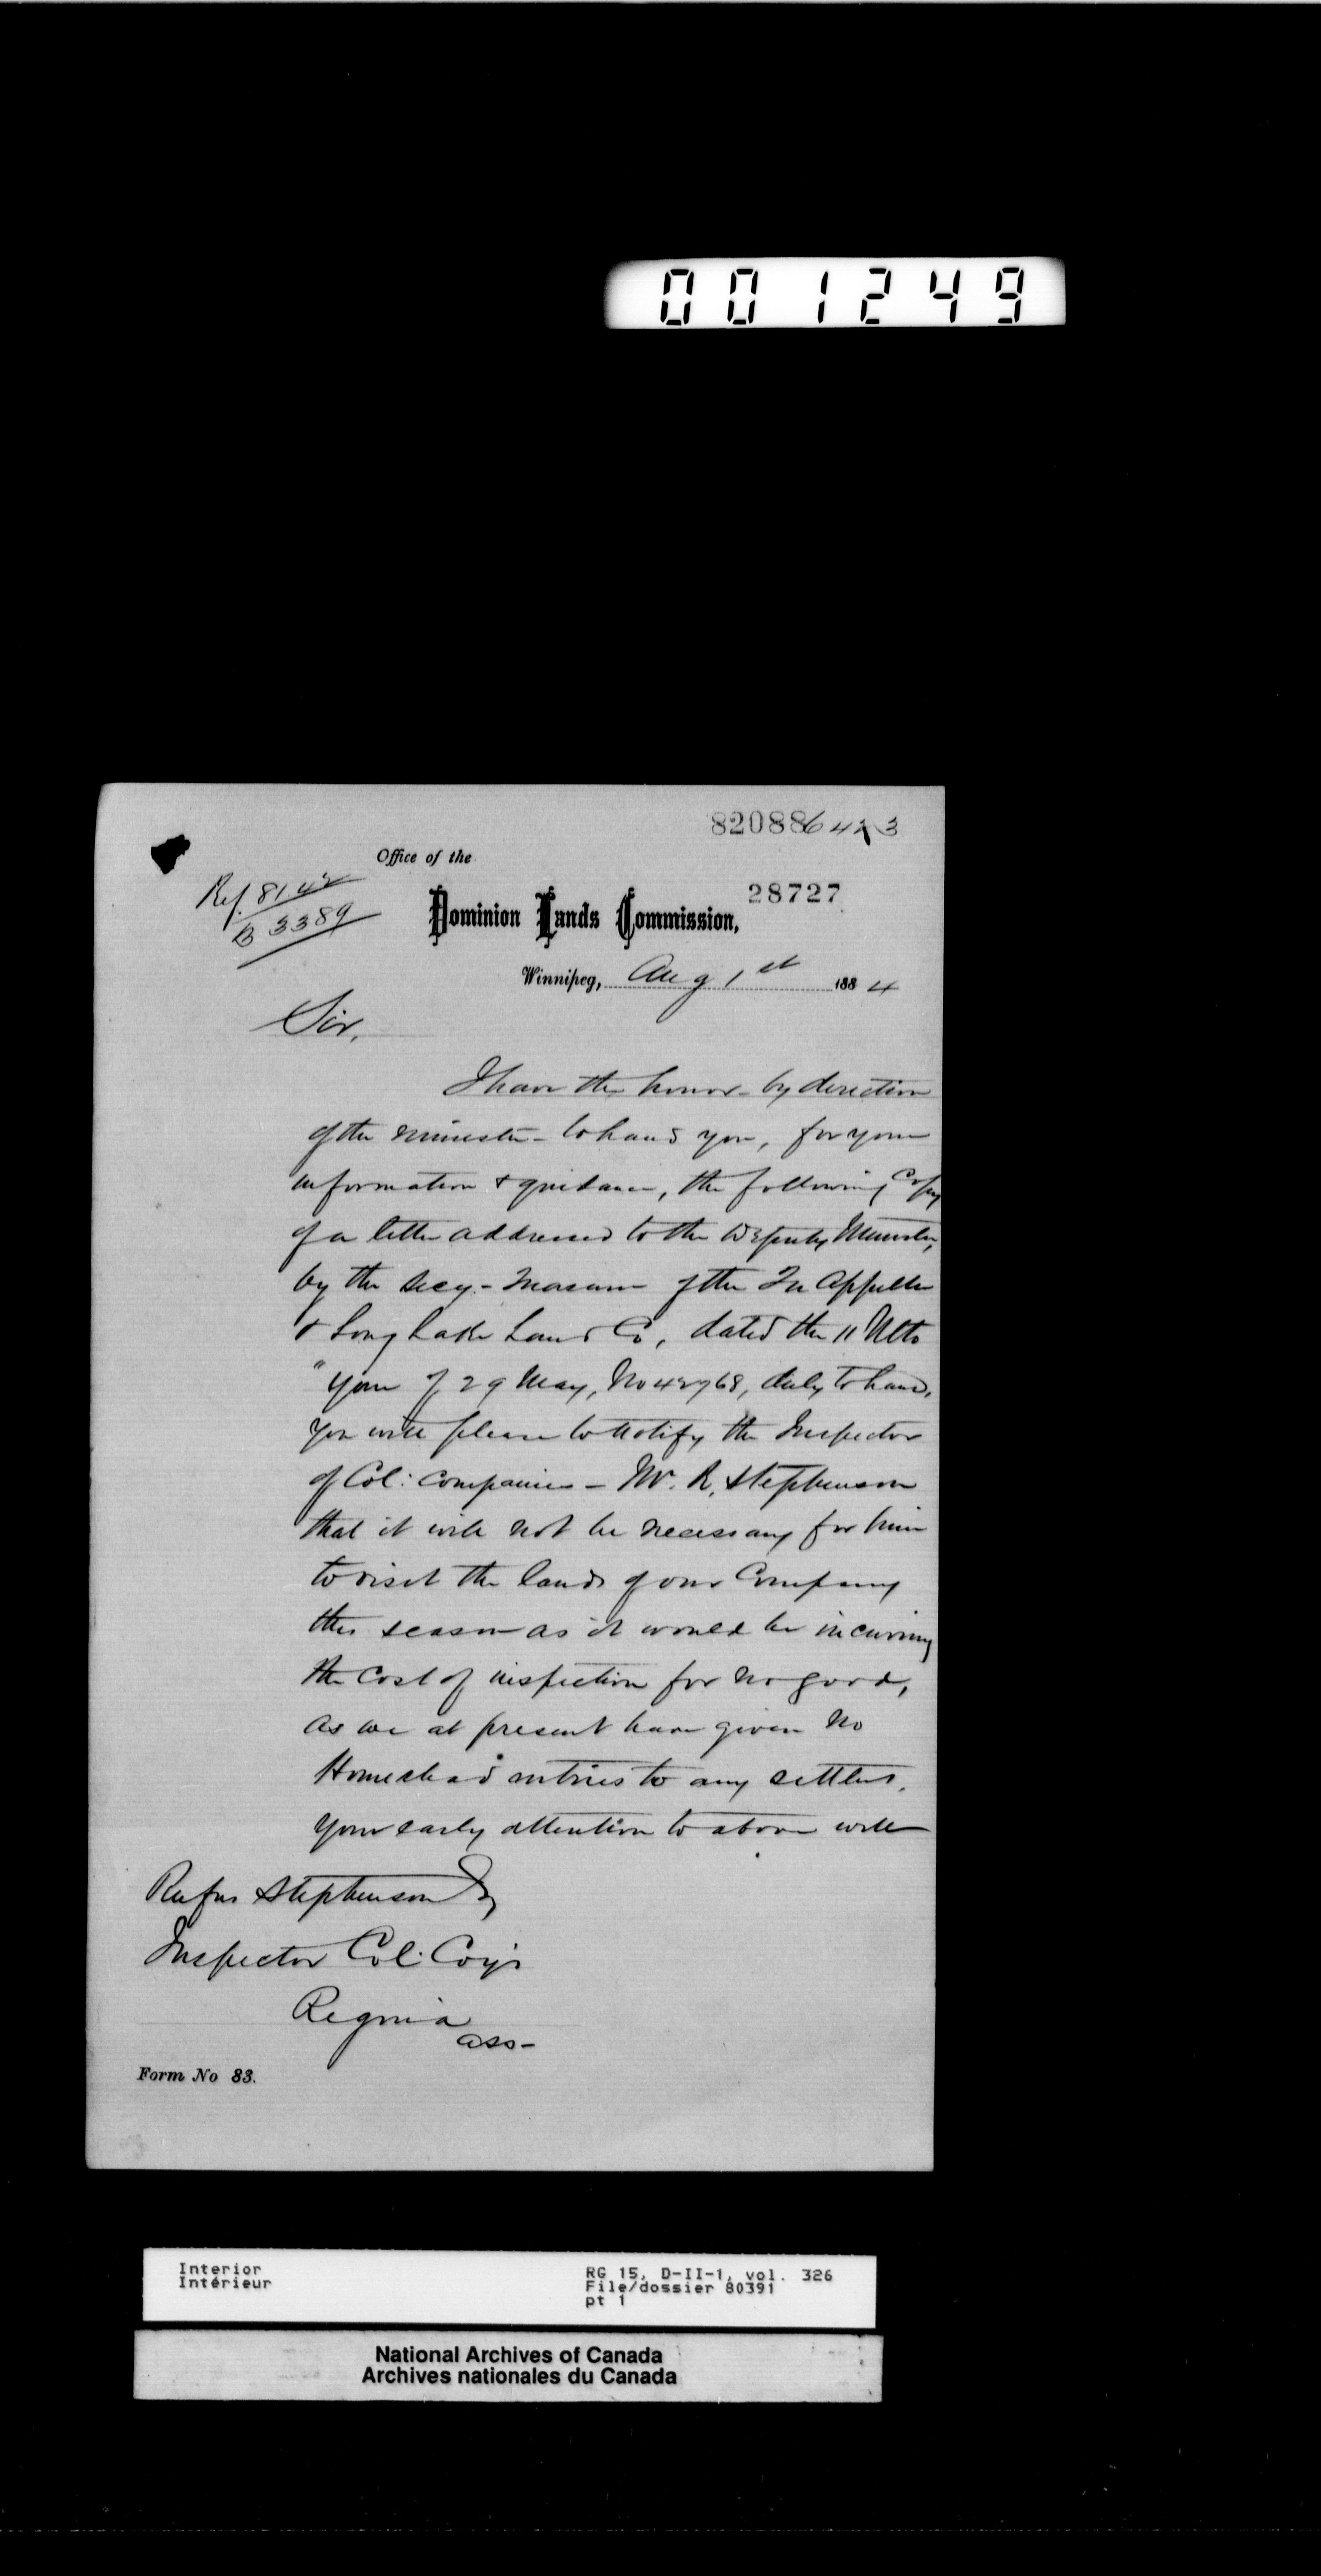 001249
82088 6423
Office of the
Ref. 8142
28727
B 3389
Dominion Lands Commission,
Winnipeg, Aug 1st 1884
Sir,
I have the honor - by direction
of the Minister - to hand you, for your
information & guidance, the following Copy
of a letter addressed to the Deputy Minister,
by the Secy - Treasurer of the Qu Appelle
& Long Lake Land Co, dated the 11 Ulto
"Your of 29 May, No 42768, duly to hand,
you will please to notify the Inspector
of Col: Companies - Mr. R. Stephenson
that it will not be necessary for him
to visit the lands of our Company
this season as it would be incurring
the cost of inspection for no good,
as we at present have given no
Homestead entries to any settlers.
Your early attention to above will
Rufus Stephenson Esq
Inspector Col: Coy's
Regina
Ass-
Form No 83.
Interior
Intérieur
RG 15, D-II-1, vol. 326
File/dossier 80391
pt 1
National Archives of Canada
Archives nationales du Canada